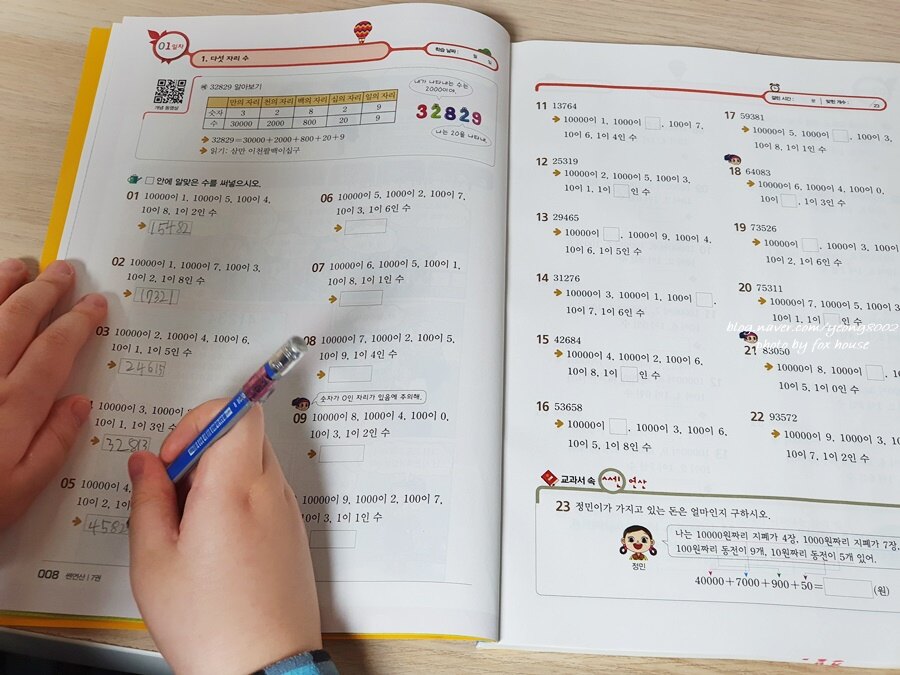 01일차
1. 다섯 자리 수
학습 날짜 : 월 일
개념 동영상
예 32829 알아보기
만의 자리 천의 자리 백의 자리 십의 자리 일의 자리
숫자 3 2 8 2 9
수 30000 2000 800 20 9
32829=30000+2000+800+20+9
읽기: 삼만 이천팔백이십구
내가 나타내는 수는
2000이야.
32829
나는 20을 나타내.
□ 안에 알맞은 수를 써넣으시오.
01 10000이 1, 1000이 5, 100이 4,
10이 8, 1이 2인 수
15482
02 10000이 1, 1000이 7, 100이 3,
10이 2, 1이 8인 수
1732
03 10000이 2, 1000이 4, 100이 6,
10이 1, 1이 5인 수
24615
10000이 3, 1000이
10이 1, 1이 3인 수
32813
05 10000이 4,
10이 2, 1이
4582
06 10000이 5, 1000이 2, 100이 7,
10이 3, 1이 6인 수
07 10000이 6, 1000이 5, 100이 1,
10이 8, 1이 1인 수
08 10000이 7, 1000이 2, 100이 5,
10이 9, 1이 4인 수
숫자가 0인 자리가 있음에 주의해.
09 10000이 8, 1000이 4, 100이 0,
10이 3, 1이 2인 수
10000이 9, 1000이 2, 100이 7,
10이 3, 1이 1인 수
008 쎈연산 | 7권
걸린 시간 : 분 맞힌 개수 : /23
11 13764
10000이 1, 1000이 □, 100이 7,
10이 6, 1이 4인 수
12 25319
10000이 2, 1000이 5, 100이 3,
10이 1, 1이 □인 수
13 29465
10000이 □, 1000이 9, 100이 4,
10이 6, 1이 5인 수
14 31276
10000이 3, 1000이 1, 100이 □,
10이 7, 1이 6인 수
15 42684
10000이 4, 1000이 2, 100이 6,
10이 8, 1이 □인 수
16 53658
10000이 □, 1000이 3, 100이 6,
10이 5, 1이 8인 수
17 59381
10000이 5, 1000이 □, 100이 3,
10이 8, 1이 1인 수
18 64083
10000이 6, 1000이 4, 100이 0,
10이 □, 1이 3인 수
19 73526
10000이 □, 1000이 3, 100이
10이 2, 1이 6인 수
20 75311
10000이 7, 1000이 5, 100이 3
10이 1, 1이 □인 수
blog.naver.com/yeong8002
photo by fox house
21 83050
10000이 8, 1000이 □, 10
10이 5, 1이 0인 수
22 93572
10000이 9, 1000이 3, 10
10이 7, 1이 2인 수
교과서 속 쎈 연산
23 정민이가 가지고 있는 돈은 얼마인지 구하시오.
나는 10000원짜리 지폐가 4장, 1000원짜리 지폐가 7장,
100원짜리 동전이 9개, 10원짜리 동전이 5개 있어.
정민
40000+7000+900+50=□(원)